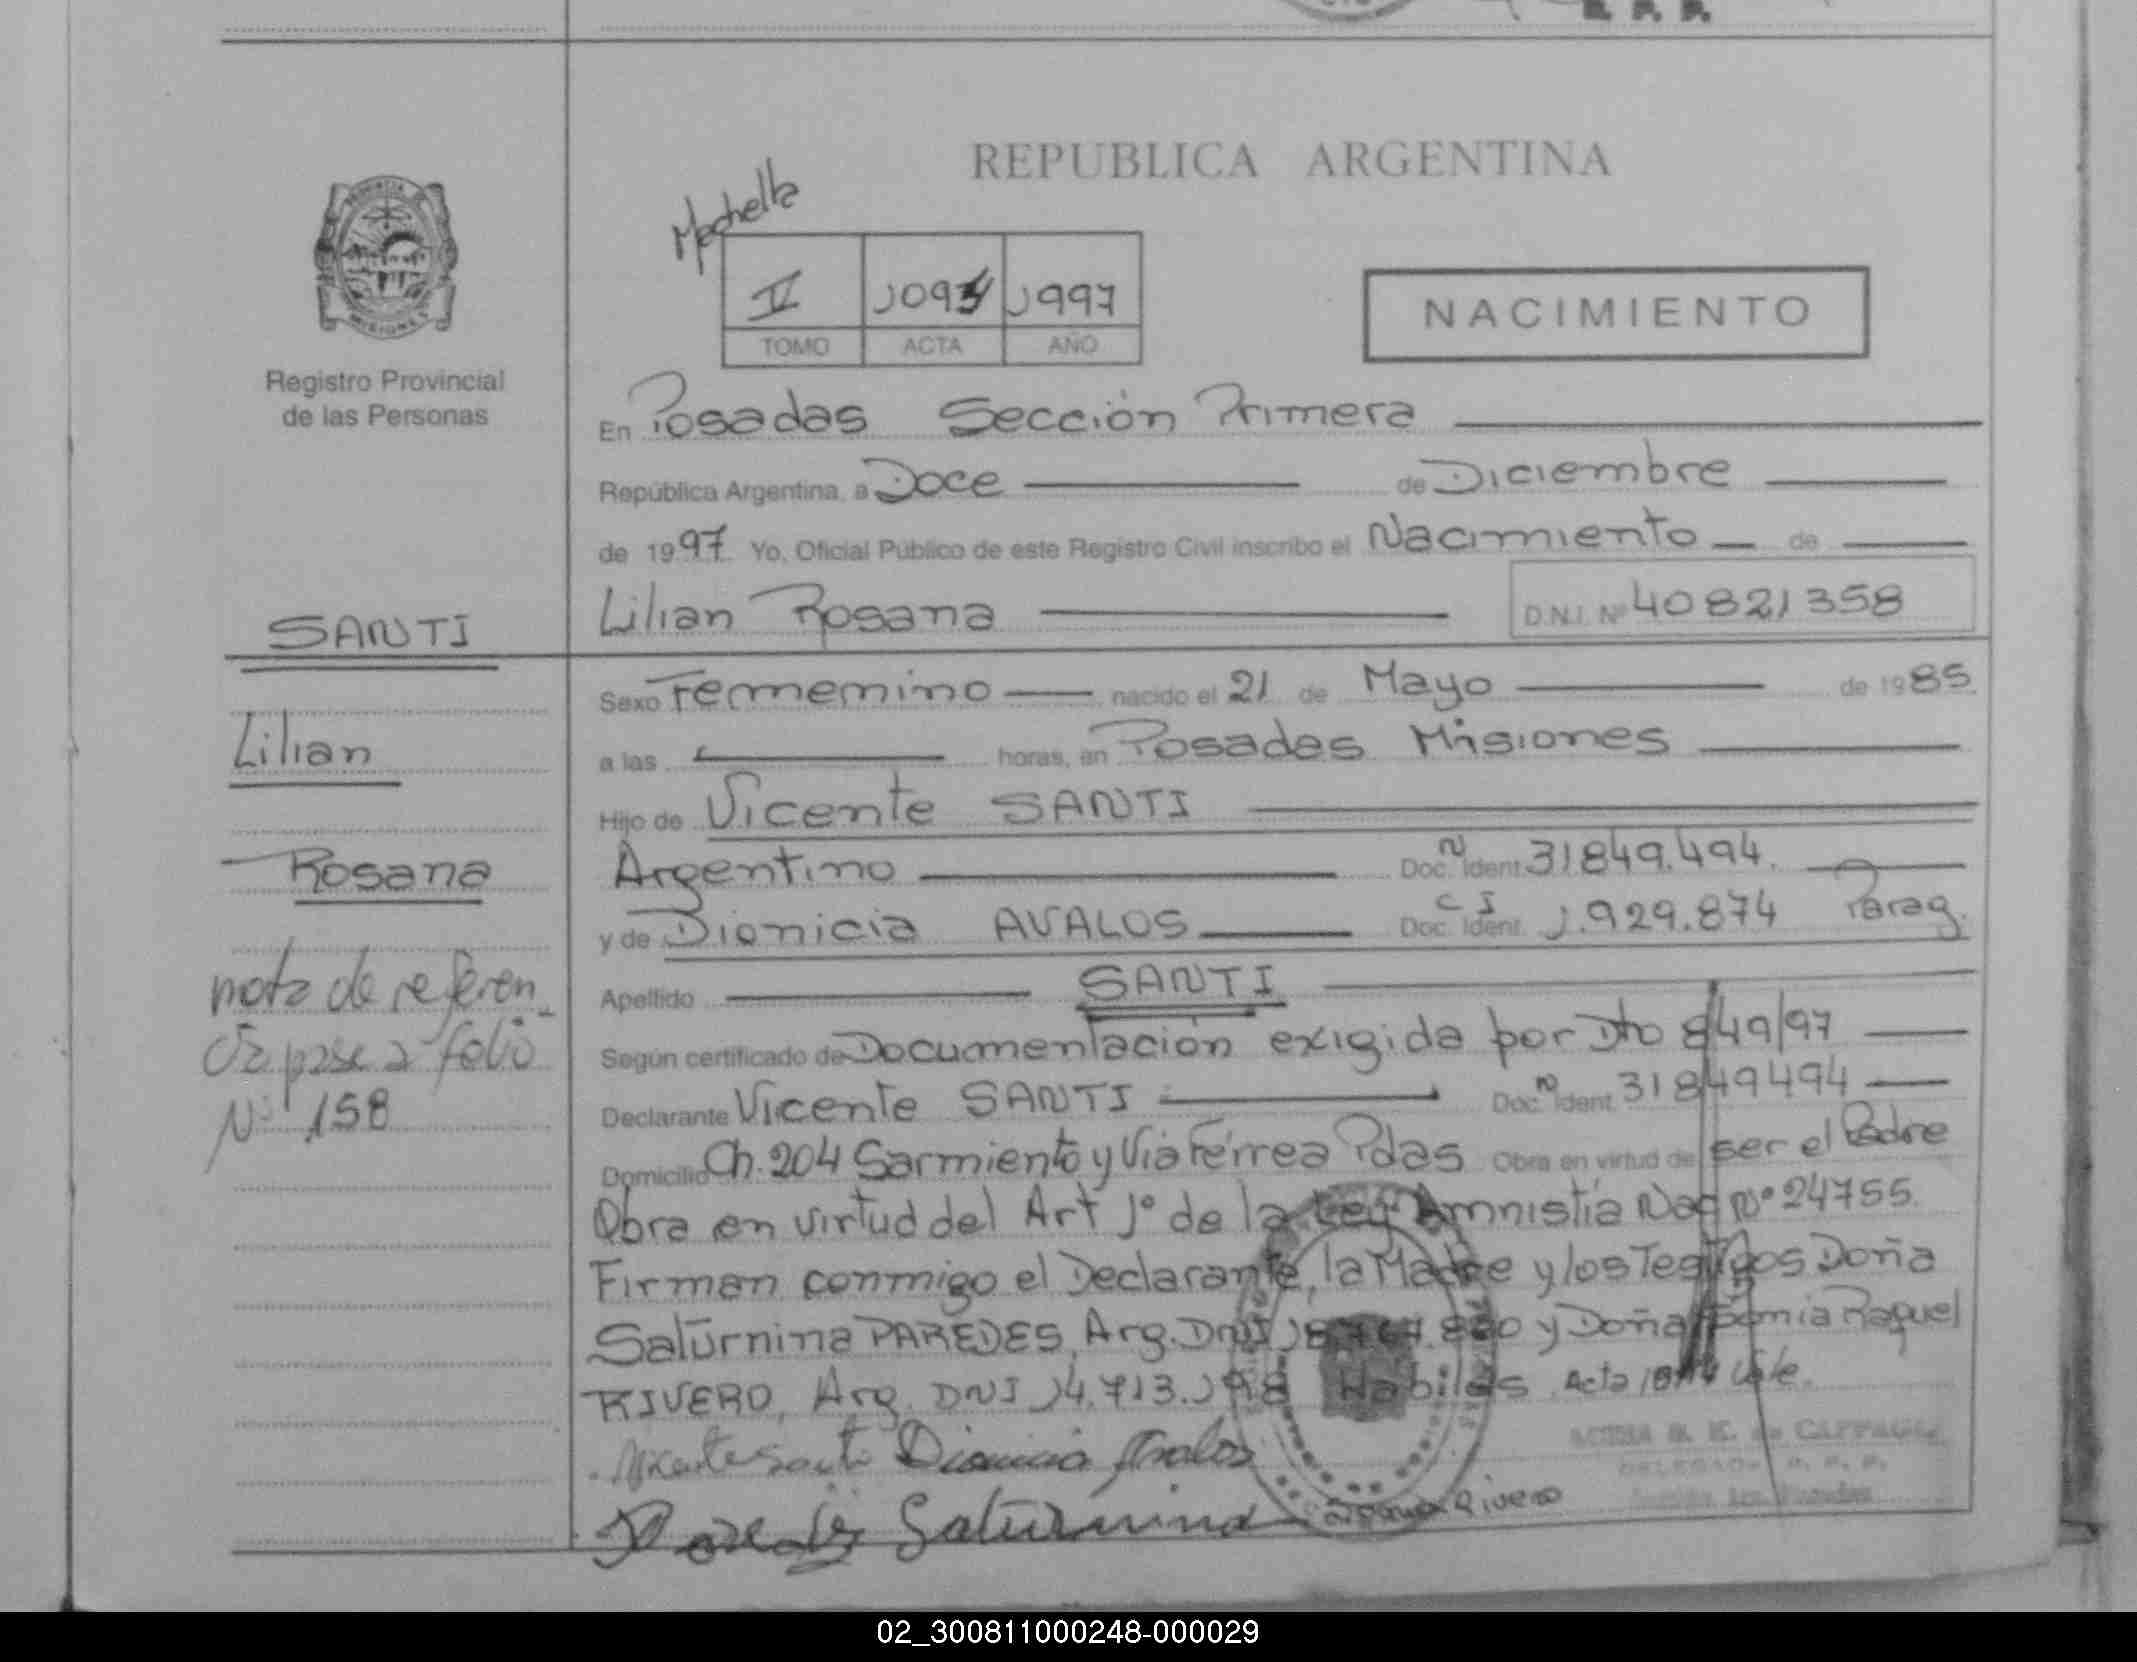 REPUBLICA ARGENTINA
II 1094 1997
TOMO ACTA AÑO
NACIMIENTO
PROVINCIA DE
MISIONES
Registro Provincial
de las Personas
En Posadas Sección Primera
República Argentina, a Doce de Diciembre
de 1997 Yo, Oficial Público de este Registro Civil inscribo el Nacimiento de
Lilian Rosana D.N.I. Nº 40821358
SANTI
Lilian
Rosana
nota de referen
cia pase a folio
Nº 158
Sexo Femmenino nacido el 21 de Mayo de 1985
a las horas, en Posadas Misiones
Hijo de Vicente SANTI
Argentino Doc. N Ident. 31849.494.
y de Dionicia AVALOS Doc. C I Ident. 1.929.874 Parag.
Apellido SANTI
Según certificado de Documentación exigida por Dto 849/97
Declarante Vicente SANTI Doc. N Ident. 31849494
Domicilio Ch. 204 Sarmiento y Via Ferrea Pdas Obra en virtud de ser el Padre
Obra en virtud del Art 1º de la Ley Amnistia Nac Nº 24755.
Firman conmigo el Declarante, la Madre y los Testigos Doña
Saturnina PAREDES, Arg. DNI y Doña Raquel
RIVERO, Arg. DNI 14.713.198 Habiles Acta Vale.
Vicente Santi Dionicia Avalos
Paredes Saturnina Rivero
02_300811000248-000029